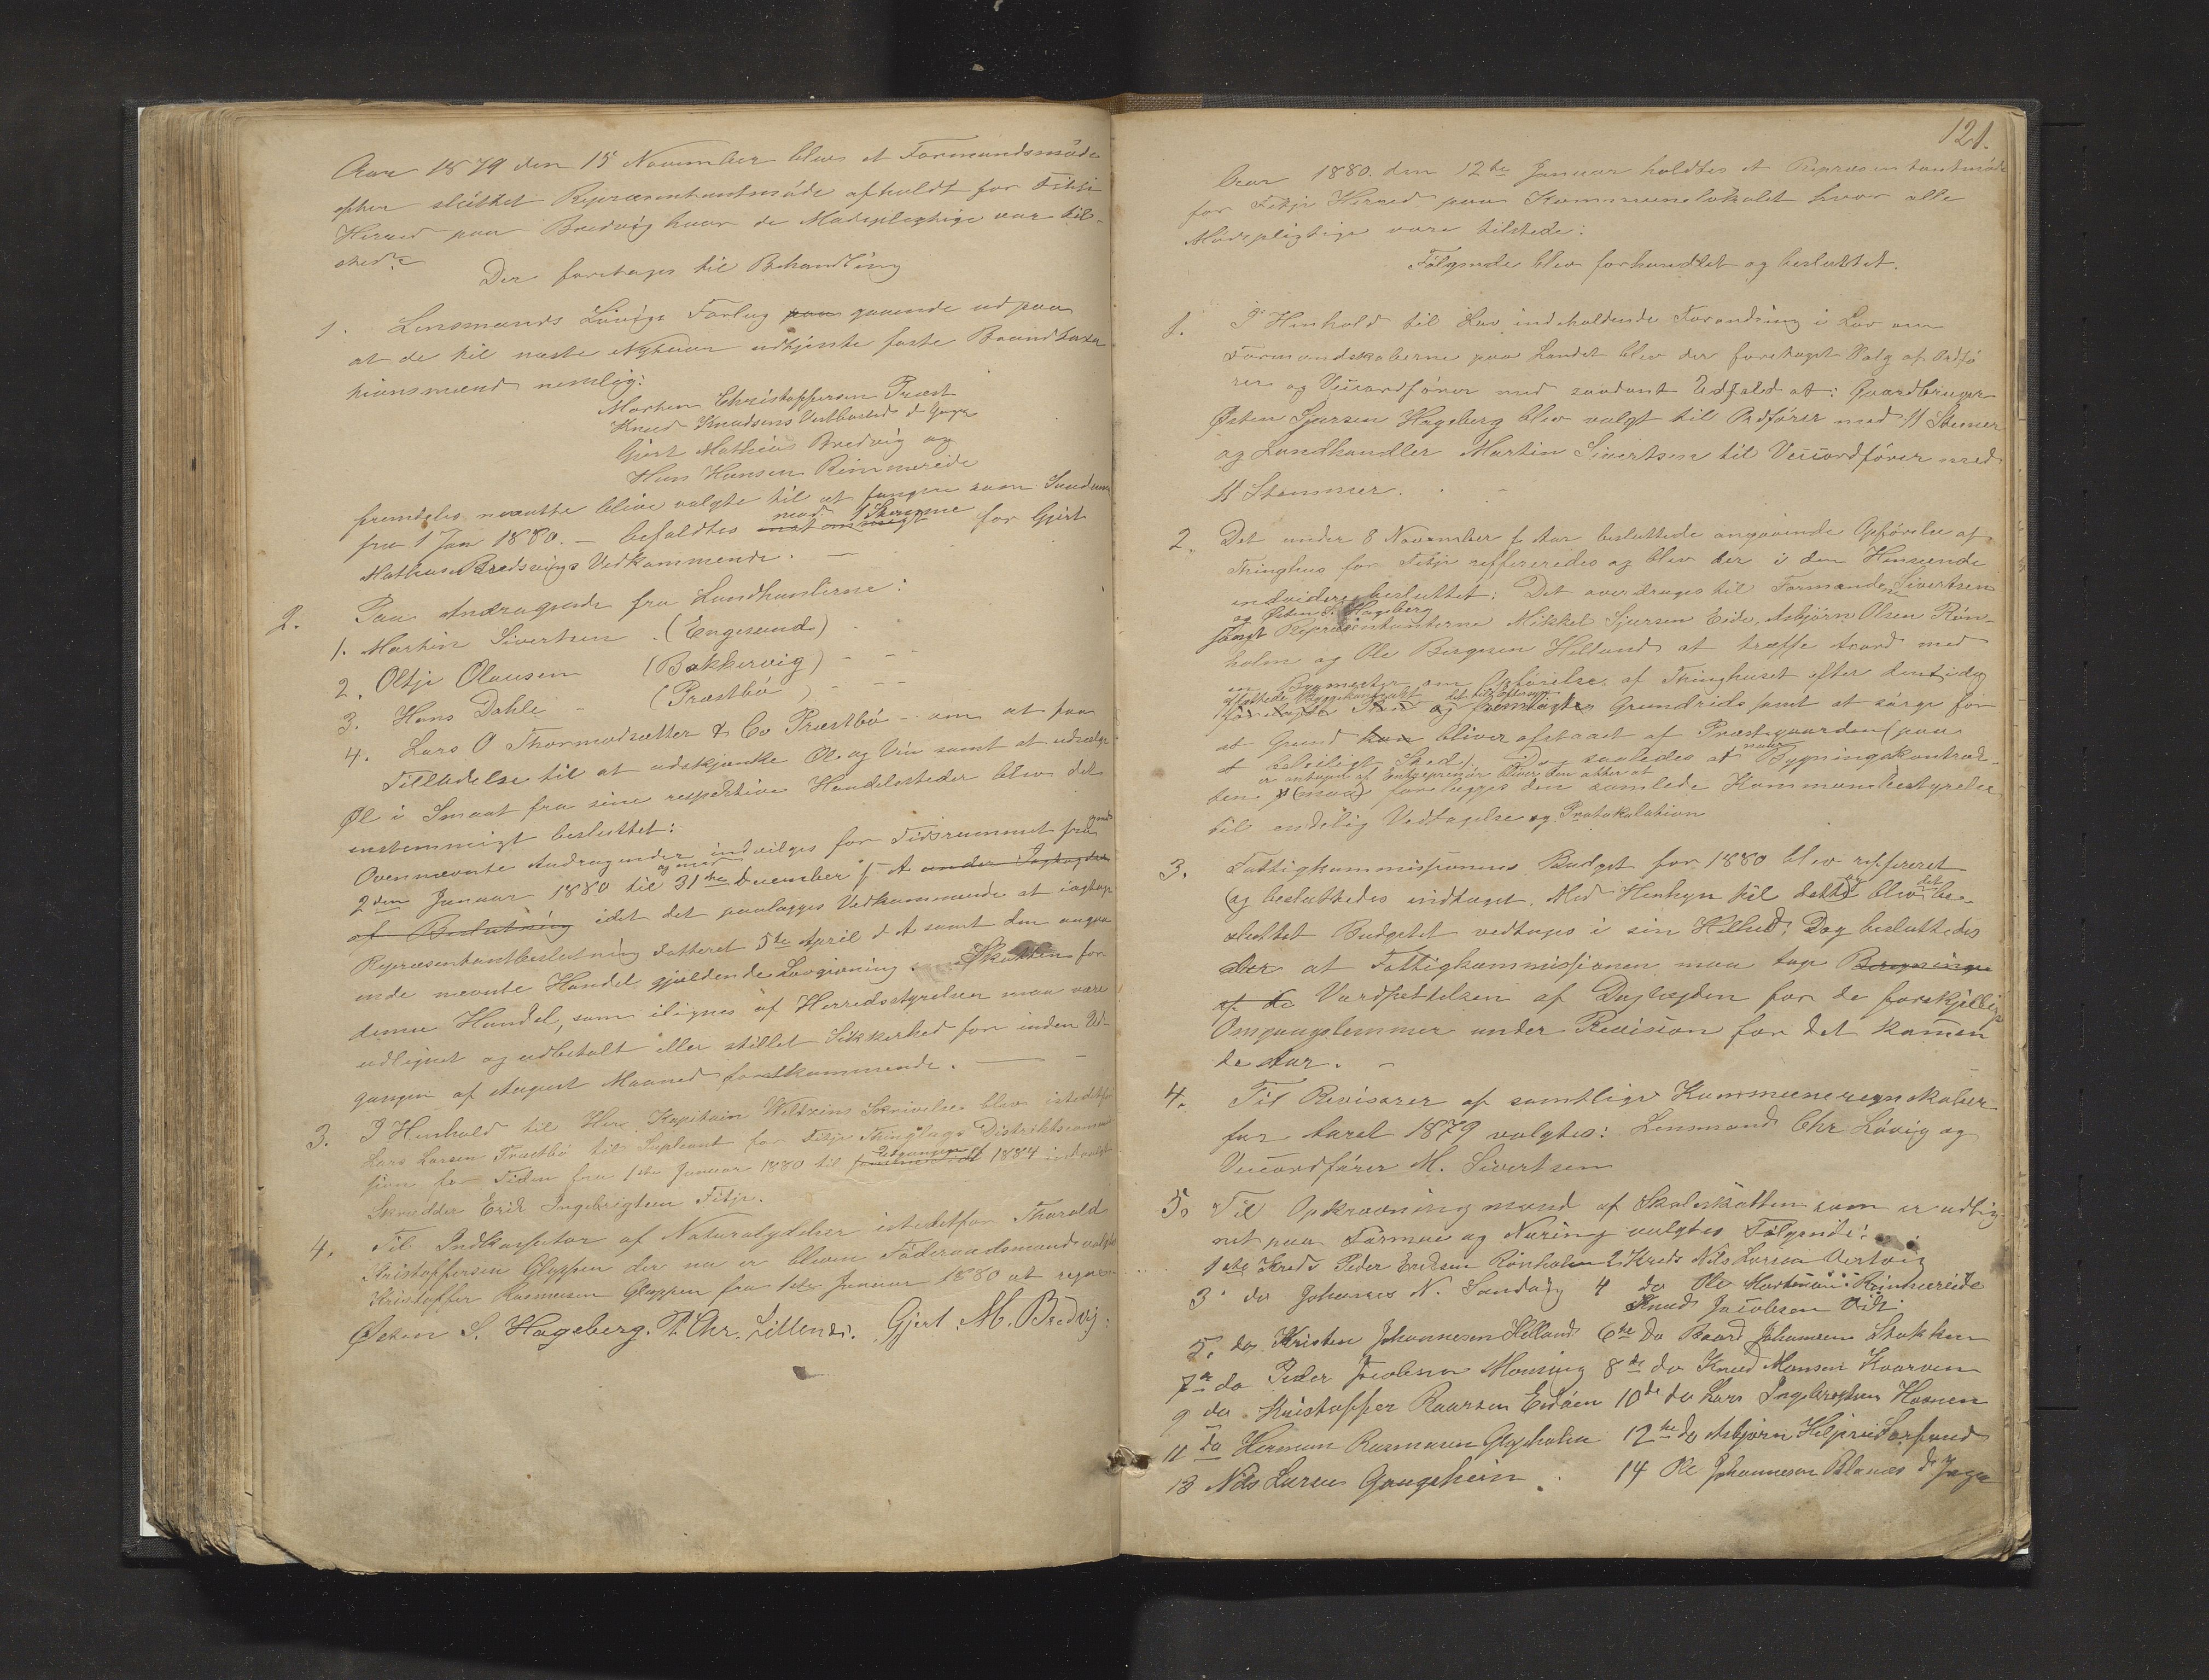 Aar 1879 den 15 November blev et Formandsmøde
efter sluttet Repræsentantmøde afholdt for Fitje
Herred paa Bredvig hvor de Mødepligtige var til-
stede
Der foretages til Behandling
1. Lensmands Løvigs Forlag paa gaaende ud paa
at de til næste Nytaar udtjente faste Brandtaxa
tionsmænd nemlig:
Morten Christoffersen Præst
Knud Knudsens Vestbøstad d Yngre
Gjert Mathias Bredvig og
Hans Hansen Rimmereide
fremdeles maatte blive valgte til at fungere som Saadan
fra 1 Jan 1880. – befaldtes enstemmigt med 1 Stemme for Gjert
Mathias Bredvigs Vedkommende. –
2. Paa Andragende fra Landhandlerne:
1. Martin Sivertsen (Engesund)
2. Oltje Olausen (Bakkervig) – – –
3. Hans Dahle – (Præstbø) – – –
4. Lars O Thormodsætter & Co Præstbø – om at faa
Tilladelse til at udskjænke Øl og Vin samt at udsælge
Øl i Smaat fra sine respektive Handelssteder blev det
enstemmigt besluttet:
Ovennævnte Andragender indvilges for Tidsrummet fra
2den Januar 1880 til og med 31te December f A under Iagttagelse
af Beslutning idet det paalægges Vedkommende at iagttage
Repræsentantbeslutning datteret 5te April d A samt den angaa
ende nævnte Handel gjældende Lovgivning Skatten for
denne Handel, som ilignes af Herredsstyrelsen maa være
udlignet og udbetalt eller stillet Sikkerhed for inden Ud-
gangen af August Maaned førstkommende. –
3. I Henhold til Herr Kapitain Weltzins Skrivelse blev istedetfor
Lars Larsen Præstbø til Supleant for Fitje Thinglags Distriktscommis
sion for Tiden fra 1ste Januar 1880 til Udgangen af 1884 indvalgt
Skrædder Erik Ingebrigtsen Fitje.
4. Til Indkassator af Naturalydelser istedetfor Thorald
Kristoffersen Gloppen der nu er bleven Føderaadsmand valgtes
Kristoffer Rasmusen Gloppen fra 1ste Januar 1880 at regne
Østen S. Hageberg. P. Chr. Lillenes. Gjert M. Bredvig.
121.
Aar 1880 den 12te Januar holdtes et Repræsentantmøde
for Fitje Herred paa Kommunelokalet hvor alle
Mødepligtige vare tilstede:
Følgende blev forhandlet og besluttet.
1. I Henhold til Lov indeholdende Forandring i Lov om
Formandskaberne paa Landet blev der foretaget Valg af Ordfø
rer og Viceordfører med saadant Udfald at: Gaardbruger
Østen Sjursen Hageberg blev valgt til Ordfører med 11 Stemer
og Landhandler Martin Sivertsen til Viceordfører med
11 Stemmer. – –
2. Det under 8 November f Aar besluttede angaaende Opførelse af
Thinghus for Fitje reffereredes og blev der i den Henseende
endvidere besluttet: Det overdrages til Formændene Sivertsen
og Østen S. Hageberg
samt Repræsentanterne Mikkel Sjursen Eide, Asbjørn Olsen Røn-
holm og Ole Birgesen Helland at træffe Acord med
en Bygmester om Opførelse af Thinghuset efter den idag
Grundrids samt at sørge for
at Grund kan bliver afstaaet af Præstegaarden (paa
et beleiligt Sted). Dog saaledes at naar Bygningskontrak-
er antagen af Entreprenør bliver den atter at
ten (maa) forelægges den samlede Kommunebestyrelse
til endelig Vedtagelse og Protokolation
3. Fattigkommissionens Budget for 1880 blev reffereret
(og besluttedes indtaget. Med Hensyn til dette) blev det be-
sluttet Budgetet vedtages i sin Helhed. Dog besluttedes
der at Fattigkommissionen maa tage Beregningen
af de Værdsættelsen af Daglægden for de forskjellige
Omgangslemmer under Revision for det kommen
de Aar. –
4. Til Revisorer af samtlige Kommuneregnskaber
for Aaret 1879 valgtes: Lensmand Chr Løvig og
Viceordfører M. Sivertsen
5. Til Opkrævningsmænd af Skoleskatten som er udlig
net paa Formue og Næring valgtes Følgende:
1ste Kreds Peder Endresen Rønholm 2 Kreds Nils Larsen Aartvig
3 do Johannes N. Sandvig 4 do Ole Mortensen Rimmereide
Knud Jacobsen Vik
5. do. Kristen Johannesen Helland 6te do Baard Johannesen Stokken
7de do Peder Jacobsen Mousing 8de do Knud Monsen Hvarven
9 do Kristoffer Raarsen Eidøen 10de do Lars Ingebrigtsen Hovnen
11 do Herman Rasmusen Glopholm 12te do Asbjørn Hilprid
13 Nils Larsen Gaugstein 14 Ole Johannesen Blanæs d Yngre